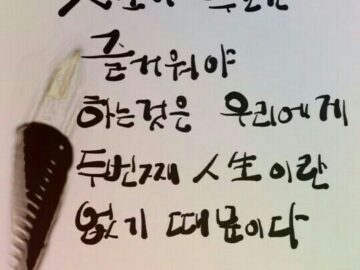 즐거워야
하는것은 우리에게
두번째 人生이란
없기 때문이다